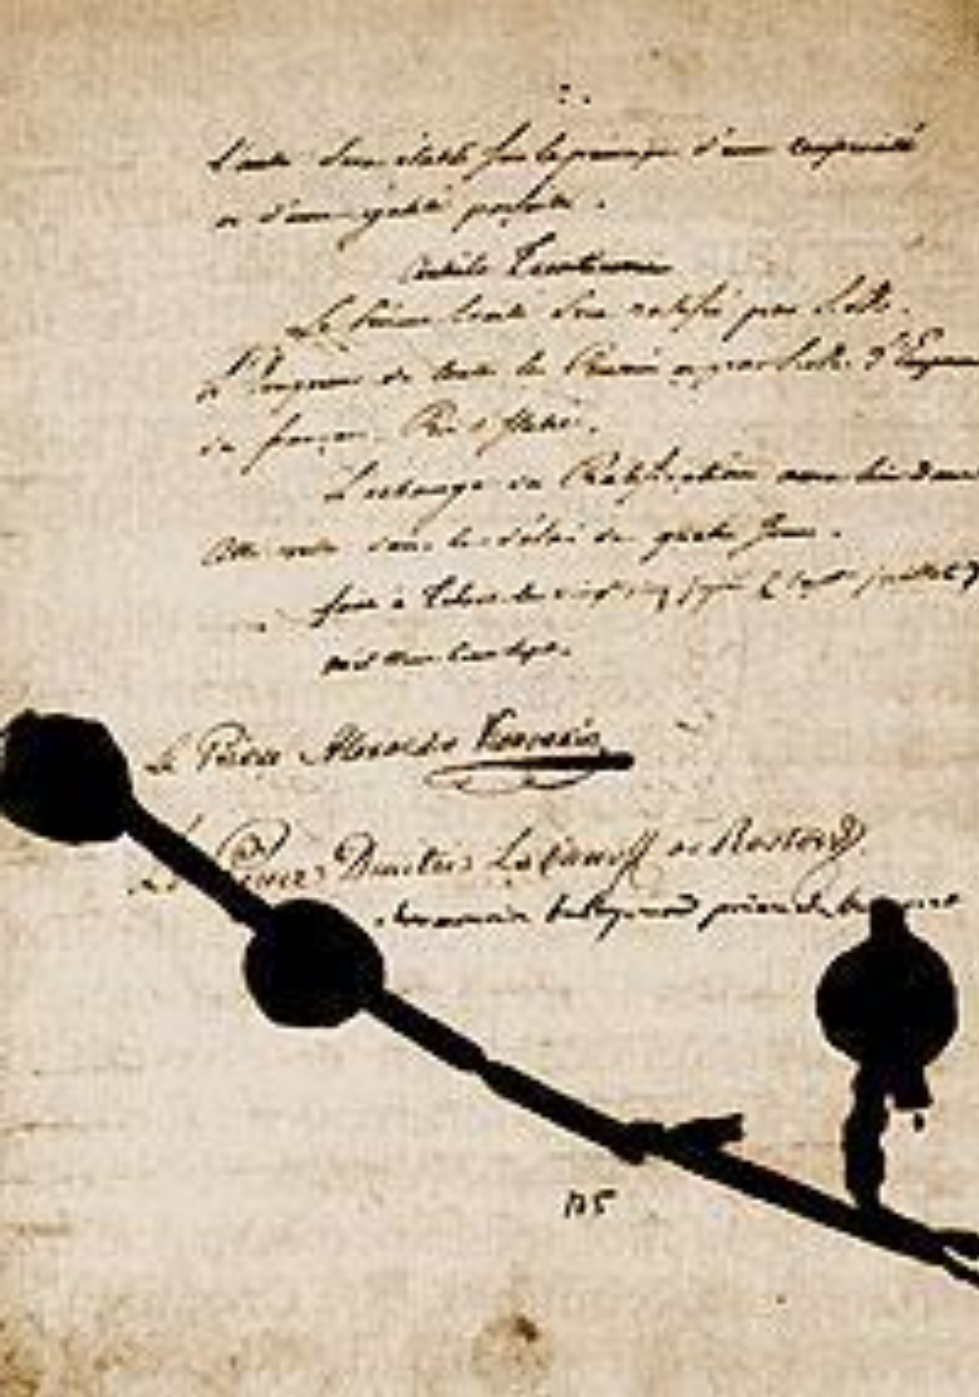 l'autre sera établi sur le principe d'une réciprocité
et d'une égalité parfaite.
Article Trentieme
Le présent traité sera ratifié par S. M.
l'Empereur de toutes les Russies et par S. M. l'Empereur
des français, Roi d'Italie.
L'échange des Ratifications aura lieu dans
cette ville dans le délai de quatre jours.
fait à Tilsit le vingt cinq juin (sept juillet)
mil huit cent sept.
Le Prince Alexandre Kourakin
Le Prince Dimitri Labanoff de Rostoff
Charles maurice talleyrand prince de Benevent